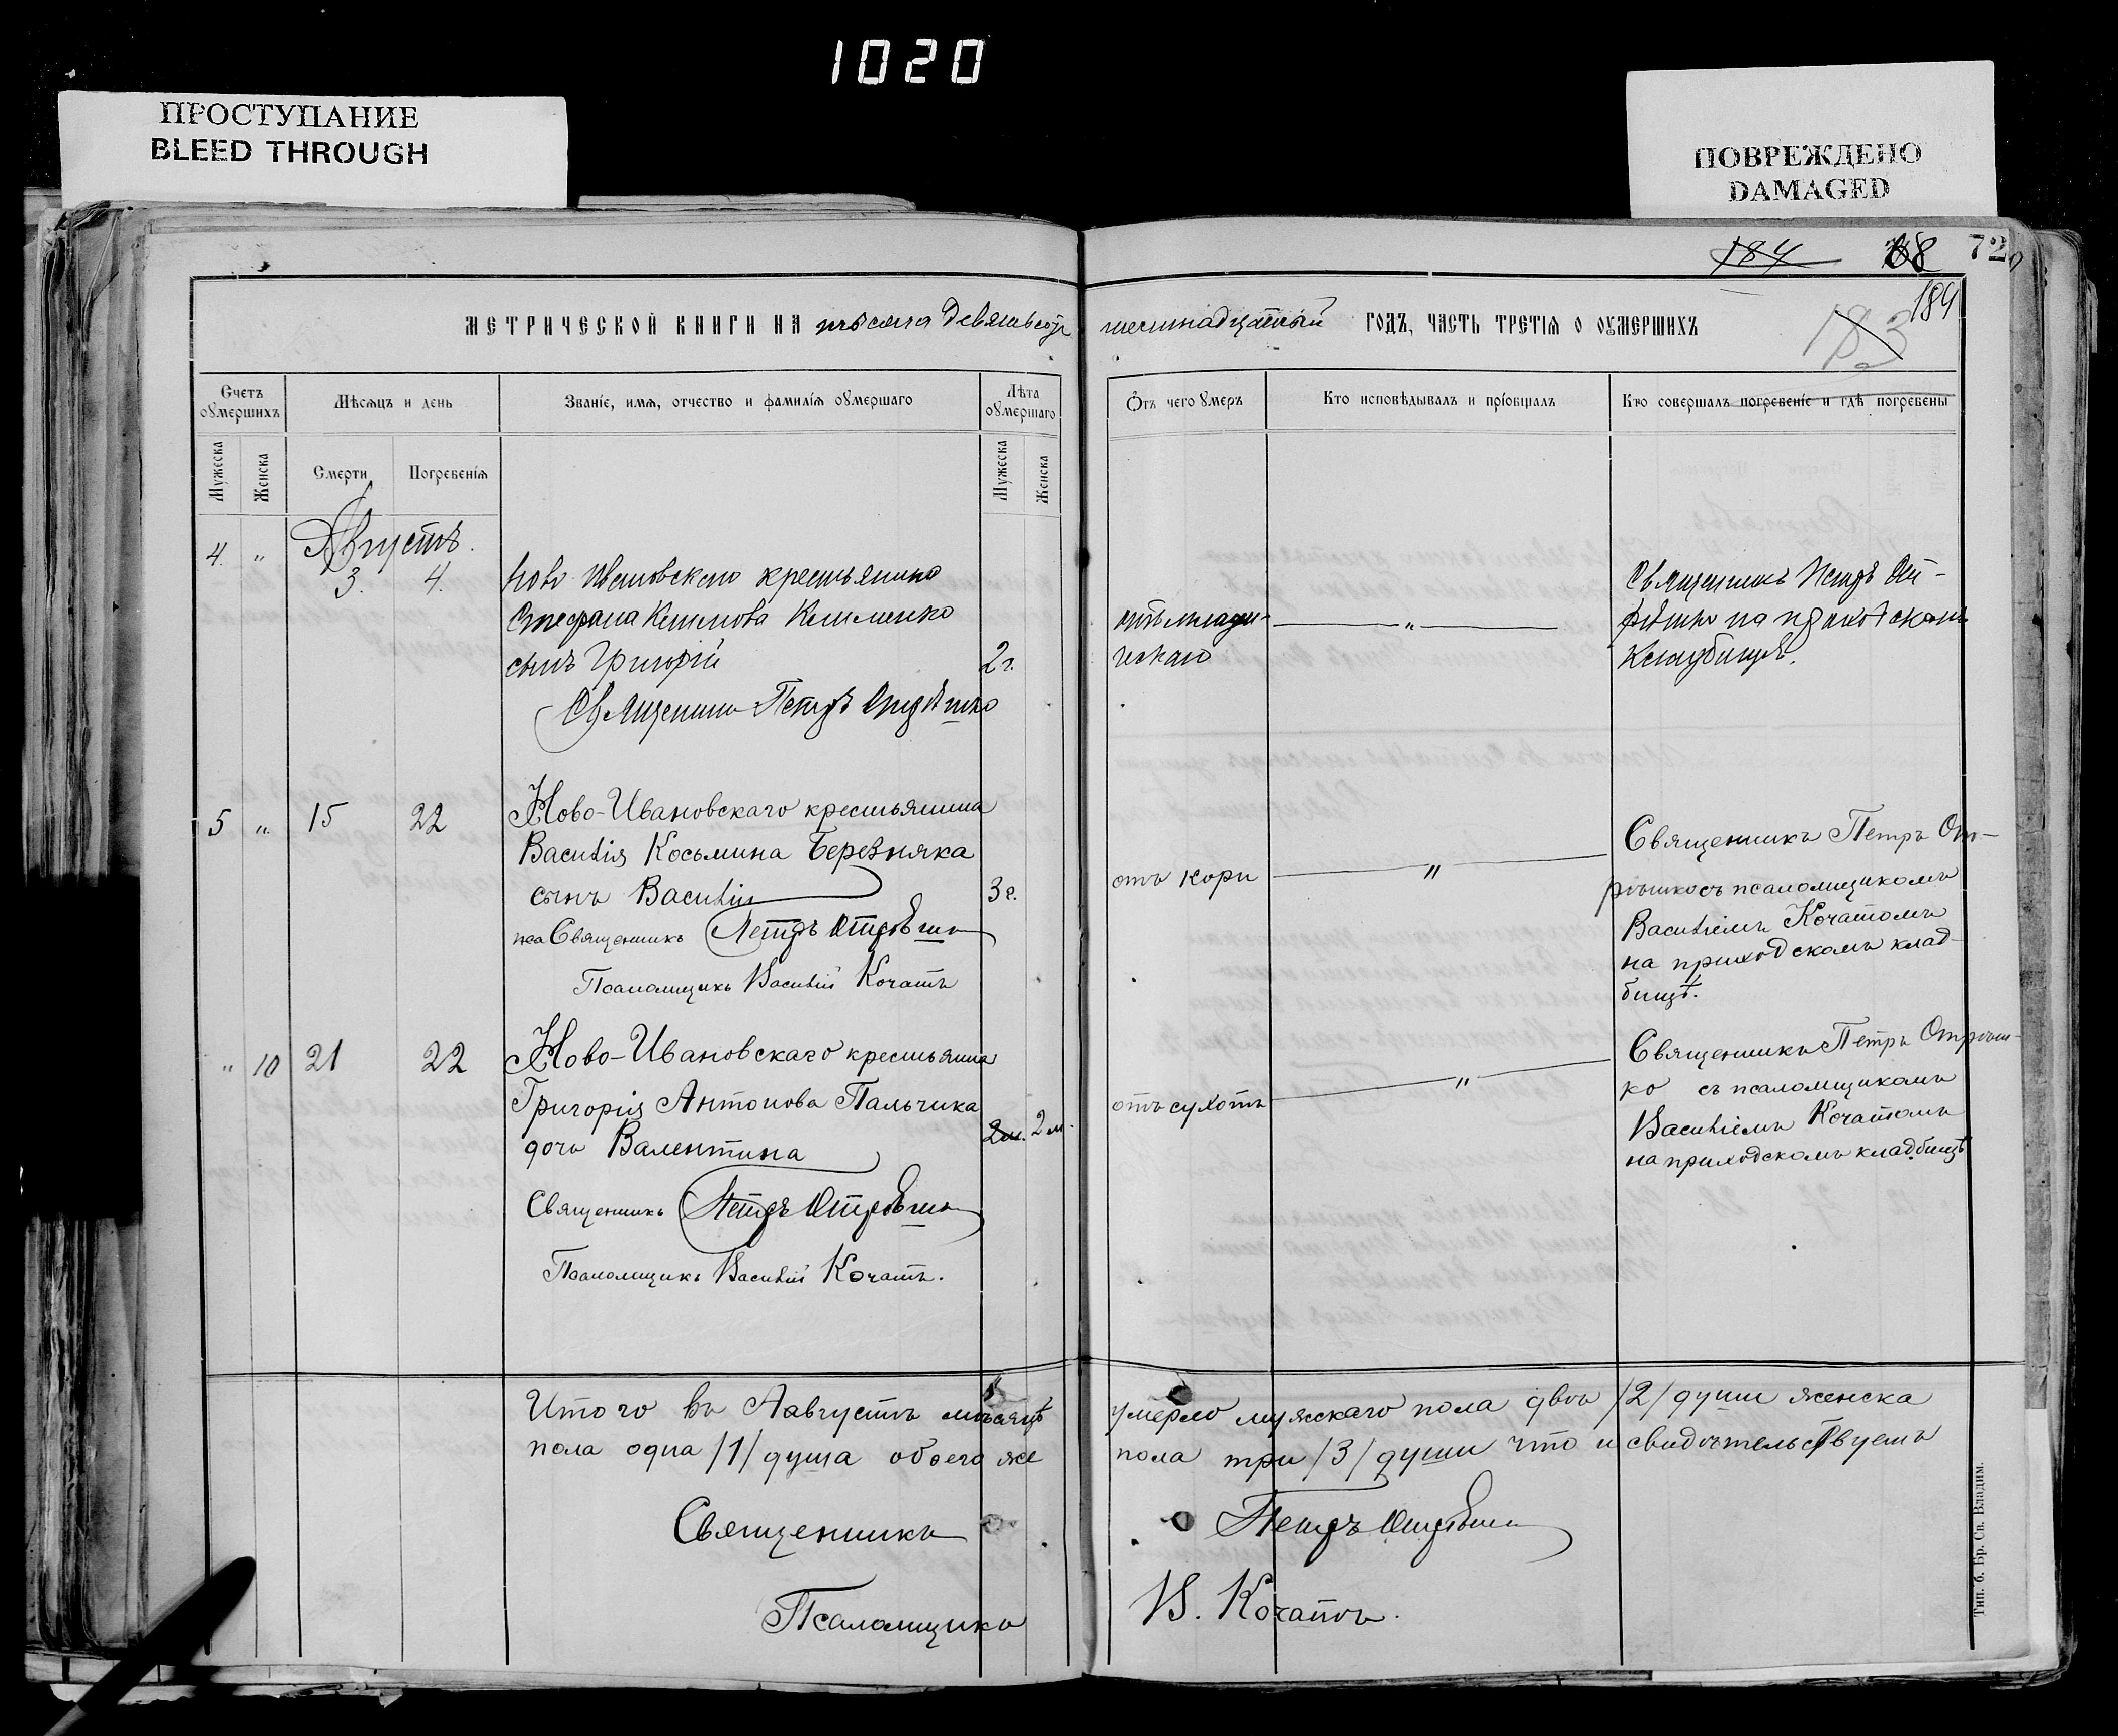 1020
ПРОСТУПАНИЕ
BLEED THROUGH
ПОВРЕЖДЕНО
DAMAGED
184 68 72
184
183
МЕТРИЧЕСКОЙ КНИГИ НА тысяча девятьсотъ шестнадцатый ГОДЪ, ЧАСТЬ ТРЕТІЯ О ОУМЕРШИХЪ
Счетъ оумершихъ
Мѣсяцъ и день
Званіе, имя, отчество и фамилія оумершаго
Лѣта оумершаго
Отъ чего умеръ
Кто исповѣдывалъ и пріобщалъ
Кто совершалъ погребеніе и гдѣ погребены
Мужеска
Женска
Смерти
Погребенія
Мужеска
Женска
Августъ.
4. „ 3. 4.
Ново Ивановскаго крестьянина
Стефана Климова Клименко
сынъ Григорій 2 г.
Священник Петръ Отрѣшко
отъ младен-
ческаго
„
Священникъ Петръ От-
рѣшко на приходскомъ
кладбищѣ.
5 „ 15 22
Ново-Ивановскаго крестьянина
Василія Косьмина Березняка
сынъ Василій 3 г.
Священникъ Петръ Отрѣшко
Псаломщикъ Василій Кочатъ
отъ кори
„
Священникъ Петръ От-
рѣшко съ псаломщикомъ
Василіемъ Кочатомъ
на приходскомъ клад-
бищѣ.
„ 10 21 22
Ново-Ивановскаго крестьянина
Григорія Антонова Пальчика
дочь Валентина 2 м. 2 м.
Священникъ Петръ Отрѣшко
Псаломщикъ Василій Кочатъ.
отъ сухотъ
„
Священникъ Петръ Отрѣш-
ко съ псаломщикомъ
Василіемъ Кочатомъ
на приходскомъ кладбищѣ
Итого въ Аавгустѣ мѣсяцѣ умерло мужскаго пола двѣ /2/ души женска
пола одна /1/ душа обоего же пола три /3/ души что и свидѣтельствуемъ
Священникъ Петръ Отрѣшко
Псаломщикъ В. Кочатъ.
Тип. б. Бр. Св. Владим.